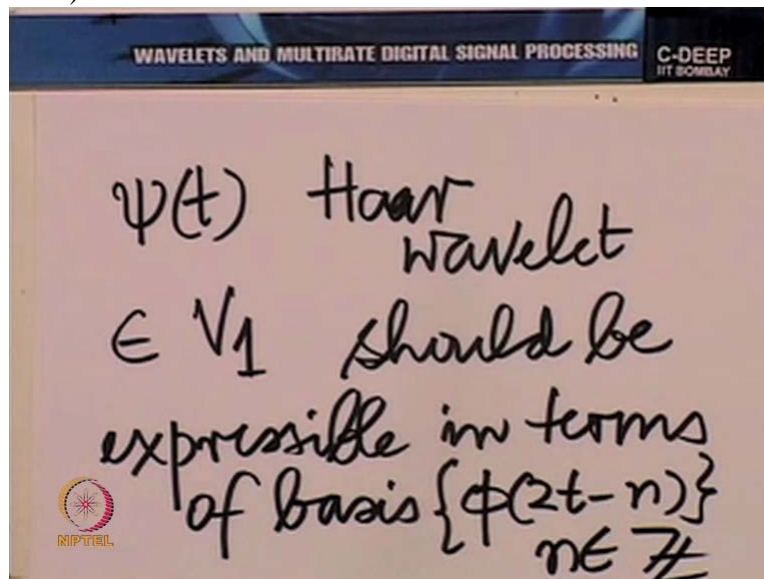 WAVELETS AND MULTIRATE DIGITAL SIGNAL PROCESSING
C-DEEP
IIT BOMBAY
ψ(t) Haar
wavelet
∈ V1 should be
expressible in terms
of basis {ϕ(2t-n)}
n∈ ℤ
NPTEL